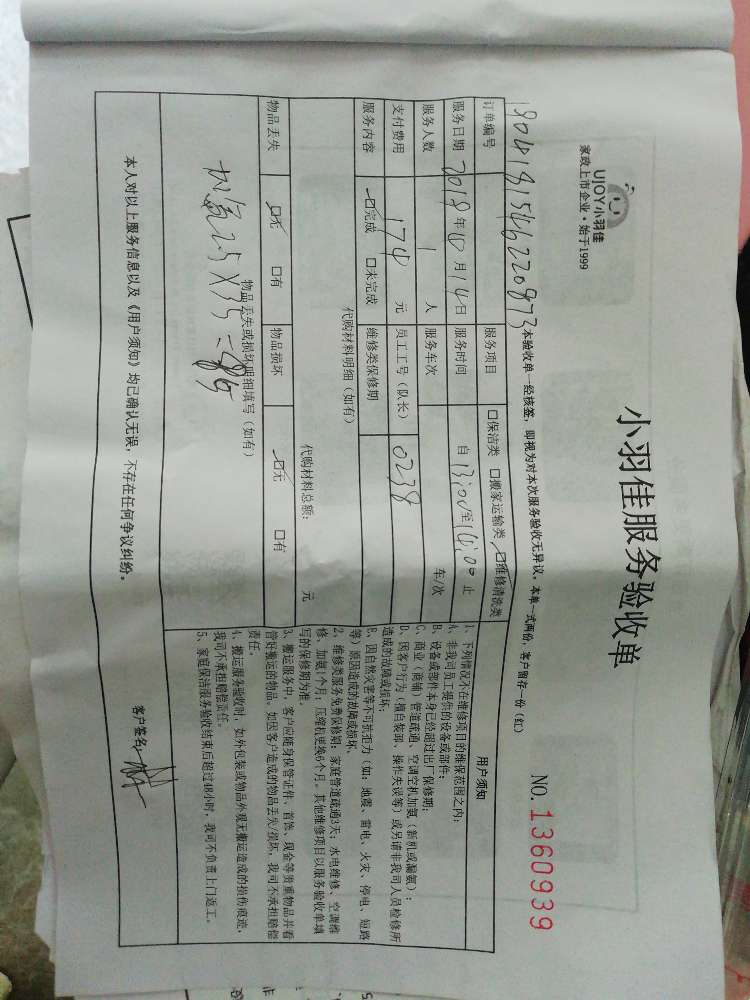 UJOY小羽佳
家政上市企业·始于1999
小羽佳服务验收单
NO.1360939
本验收单一经核签，即视为对本次服务验收无异议。本单一式两份，客户留存一份（红）
订单编号 服务项目 口保洁类 口搬家运输类 口维修清洗类
服务日期 2019年 月14日 服务时间 自13:00至 止
服务人数 1 人 服务车次 车/次
支付费用 174 元 员工工号（队长） 0238
服务内容 口完成 口未完成 维修类保修期
代购材料明细（如有）
代购材料总额： 元
物品丢失 口无 口有 物品损坏 口无 口有
物品丢失或损坏明细填写（如有）
加氟2.5X35=
用户须知
1、下列情况不在维修项目的维保范围之内：
A、非我司员工提供的设备或部件；
B、设备或部件本身已经超过出厂保修期；
C、商业（商铺）管道疏通、空调空机加氨（新机或漏氨）；
D、因客户行为（擅自装卸、操作失误等）或另请非我司人员检修所
造成的故障或损坏；
E、因自然灾害等不可抗拒力（如：地震、雷电、火灾、停电、短路
等）原因造成的故障或损坏。
2、维修类服务免费保修期：家庭管道疏通3天；水电维修、空调维
修、加氨1个月；压缩机更换6个月。其他维修项目以服务验收单填
写的保修期为准。
3、搬运服务中，客户应随身保管证件、首饰、现金等贵重物品并看
管好搬运的物品。如因客户造成的物品丢失/损坏，我司不承担赔偿
责任。
4、搬运服务验收时，如外包装或物品外观无搬运造成的损伤痕迹，
我司不承担赔偿责任。
5、家庭保洁服务验收结束后超过48小时，我司不负责上门返工。
本人对以上服务信息以及《用户须知》均已确认无误，不存在任何争议纠纷。
客户签名：